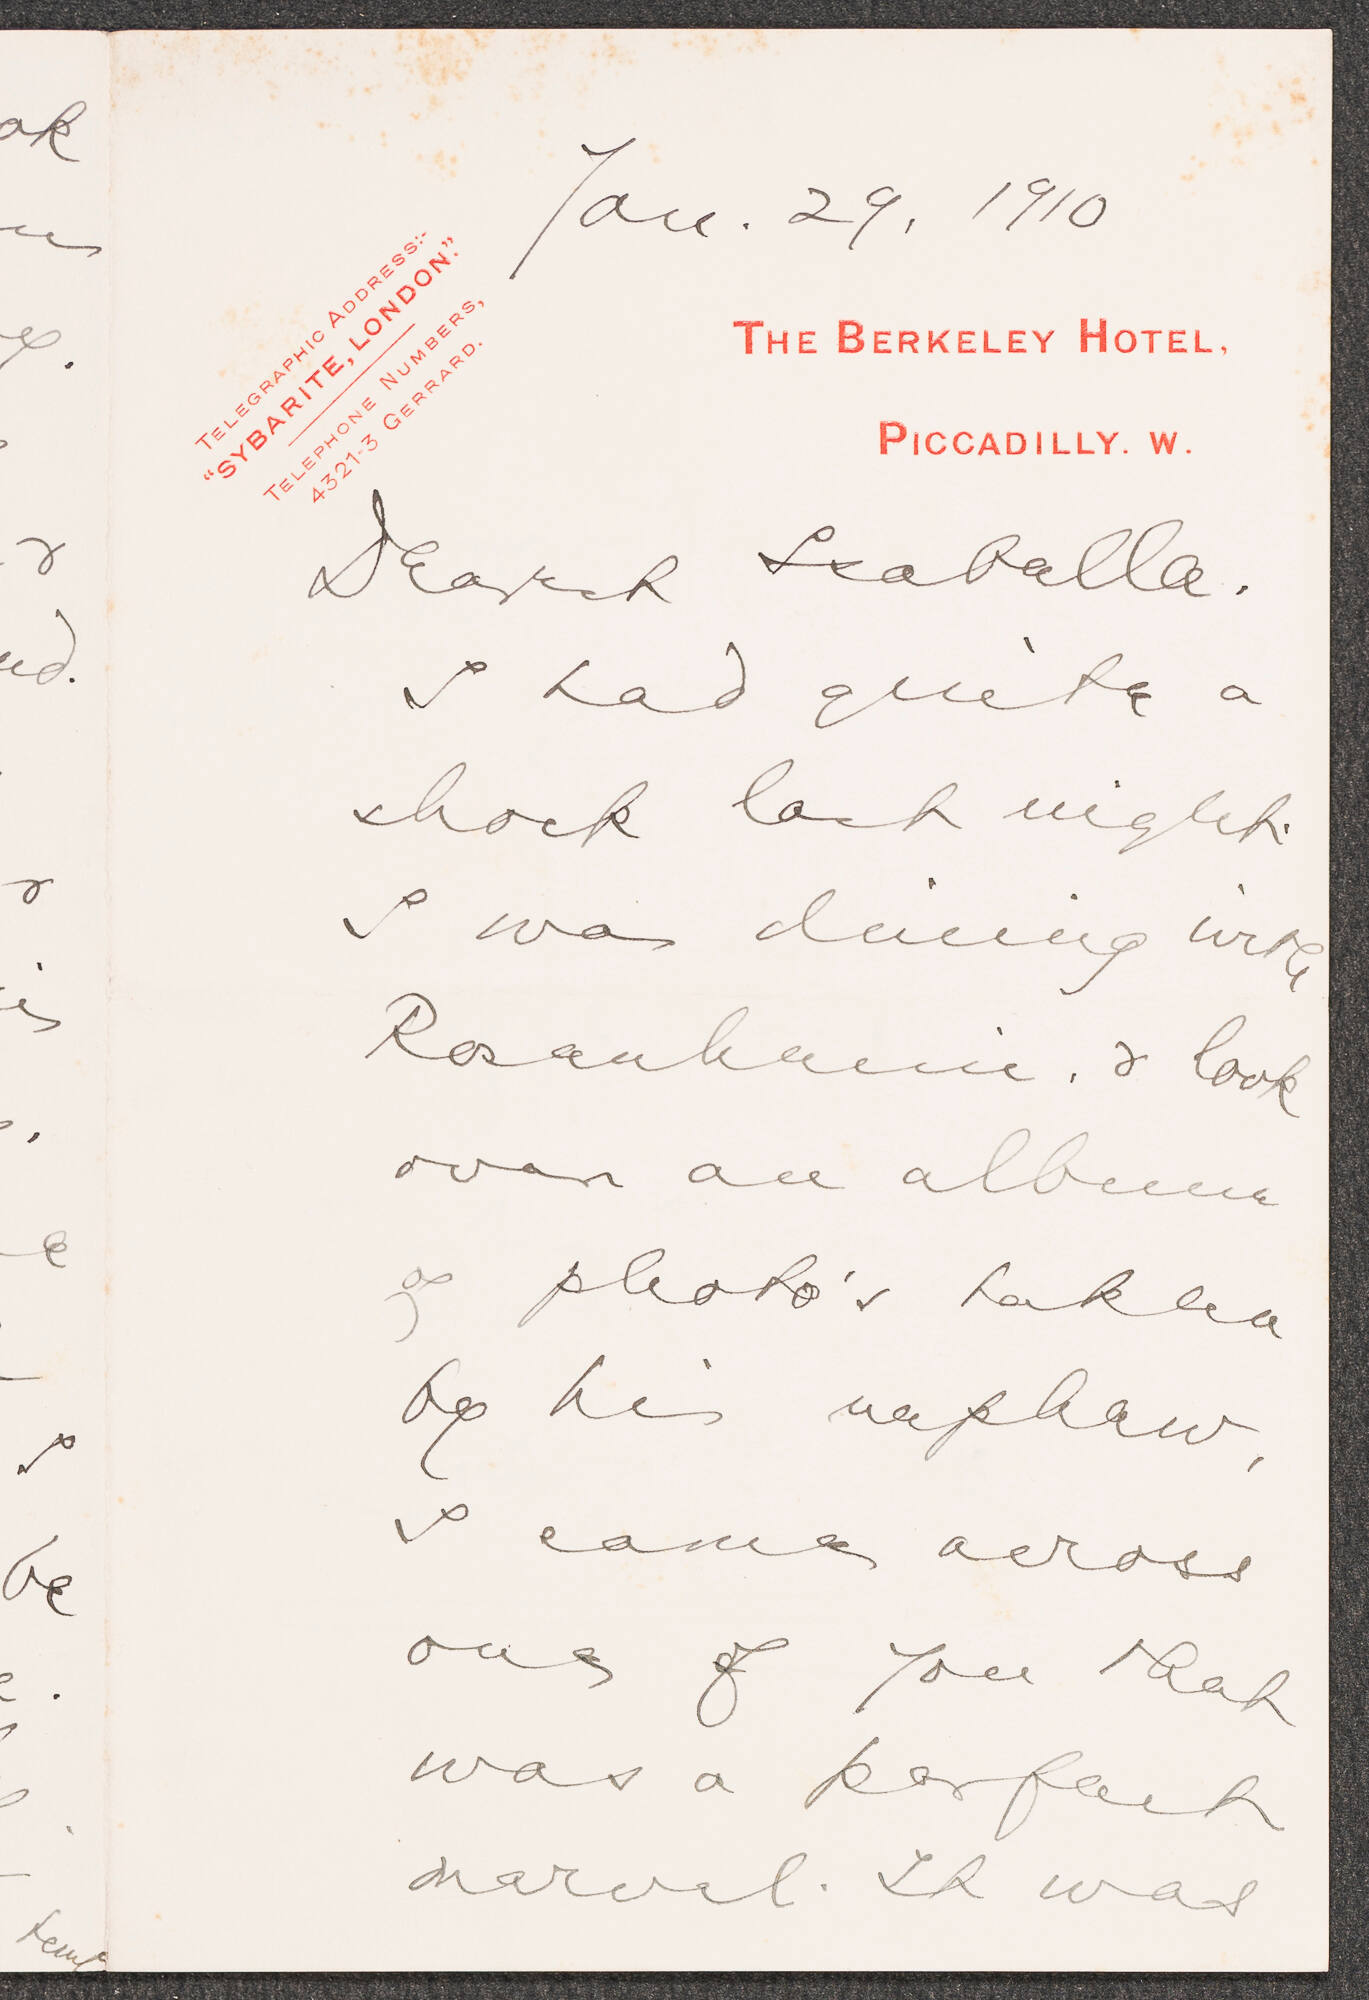 Jan. 29, 1910
TELEGRAPHIC ADDRESS:-
"SYBARITE, LONDON."
TELEPHONE NUMBERS,
4321-3 GERRARD.
THE BERKELEY HOTEL,
PICCADILLY. W.
Dearest Isabella.
I had quite a
shock last night.
I was dining with
& look
over an album
of photo's taken
by his nephew,
I came across
one of you that
was a perfect
marvel. It was
ok
nd.
I
be